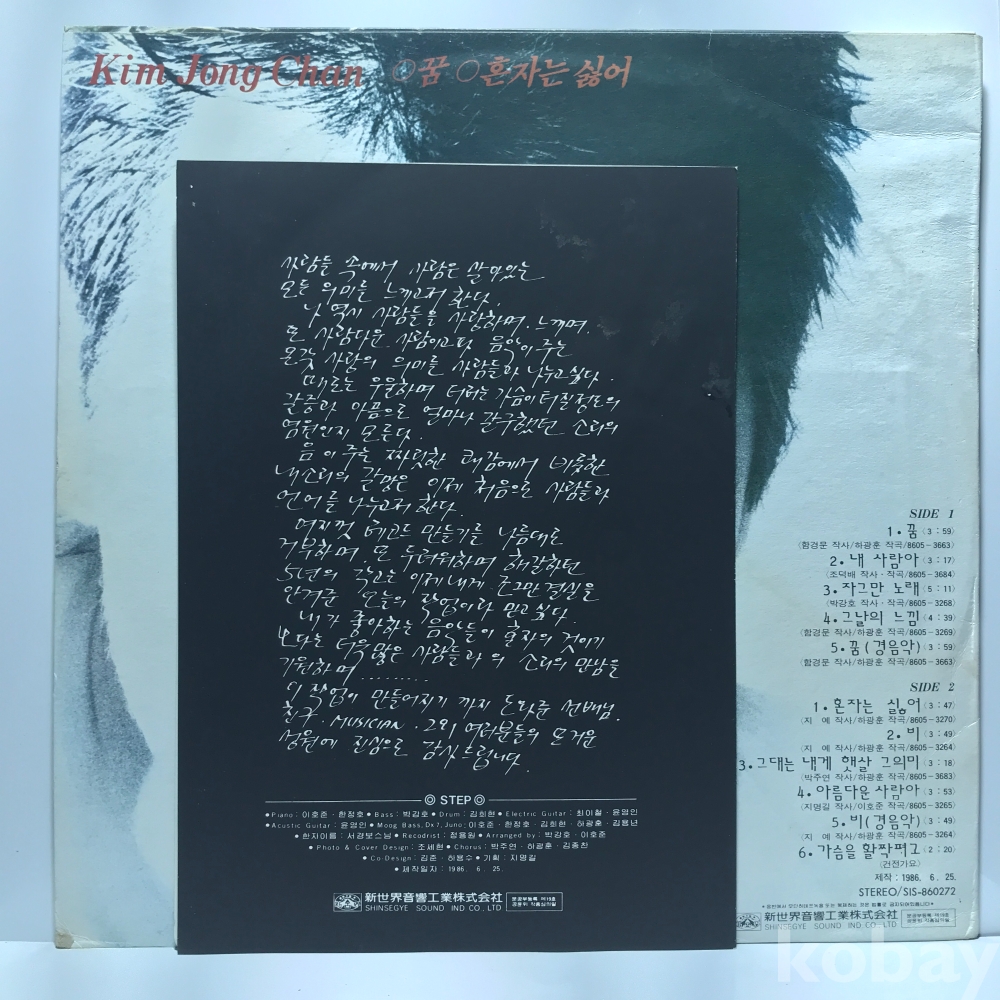 Kim Jong Chan ◎꿈 ○혼자는 싫어
사람들 속에서 사람은 살아있는
모든 의미를 느끼고저 한다.
나 역시 사람들을 사랑하며. 느끼며.
또 사람다운 사람이고파 음악이 주는
온갖 사랑의 의미를 사람들과 나누고 싶다.
때로는 우울하며 때로는 가슴이 터질정도의
갈증과 아픔으로 얼마나 갈구했던 소리의
염원인지 모른다.
음이 주는 짜릿한 쾌감에서 비롯한
내소리의 갈망은 이제 처음으로 사람들과
언어를 나누고저 한다.
여지껏 레코드 만들기를 나름대로
거부하며, 또 두려워하며 해갈하던
5년의 작고는 이제 내게 조그만 결실을
안겨준 오늘의 작업이라 믿고 싶다.
내가 좋아하는 음악들이 혼자의 것이기
보다는 더욱 많은 사람들과의 소리의 만남을
기원하며 ........
이 작업이 만들어지기 까지 도와준 선배님.
친구. MUSICIAN. 그외 여러분들의 뜨거운
성원에 진심으로 감사드립니다.
◎ STEP ◎
●Piano: 이호준 · 한정호 ●Bass: 박강호 ●Drum: 김희현 ●Electric Guitar: 최이철 · 윤영인
●Acustic Guitar: 윤영인 ●Moog Bass, Dx7, Juno: 이호준 · 한정호 · 김희현 · 하광훈 · 김용년
●한지이름: 서경보스님 ●Recodrist: 정용원 ●Arranged by: 박강호 · 이호준
●Photo & Cover Design: 조세현 ●Chorus: 박주연 · 하광훈 · 김종찬
●Co-Design: 김준 · 허용수 ●기획: 지명길
●제작일자: 1986. 6. 25.
新世界音響工業株式会社
SHINSEGYE SOUND IND CO., LTD
SIDE 1
1•꿈〈3:59〉
〈함경문 작사/하광훈 작곡/8605-3663〉
2•내 사람아〈3:17〉
〈조덕배 작사·작곡/8605-3684〉
3•자그만 노래〈5:11〉
〈박강호 작사·작곡/8605-3268〉
4•그날의 느낌〈4:39〉
〈함경문 작사/하광훈 작곡/8605-3269〉
5•꿈(경음악)〈3:59〉
〈함경문 작사/하광훈 작곡/8605-3663〉
SIDE 2
1•혼자는 싫어〈3:47〉
〈지 예 작사/하광훈 작곡/8605-3270〉
2•비〈3:49〉
〈지 예 작사/하광훈 작곡/8605-3264〉
3•그대는 내게 햇살 그의미〈3:18〉
〈박주연 작사/하광훈 작곡/8605-3683〉
4•아름다운 사람아〈3:53〉
〈지명길 작사/이호준 작곡/8605-3265〉
5•비(경음악)〈3:49〉
〈지 예 작사/하광훈 작곡/8605-3264〉
6•가슴을 활짝펴고〈2:20〉
〈건전가요〉
제작: 1986. 6. 25.
STEREO/SIS-860272
新世界音響工業株式会社
SHINSEGYE SOUND IND CO., LTD
kobay